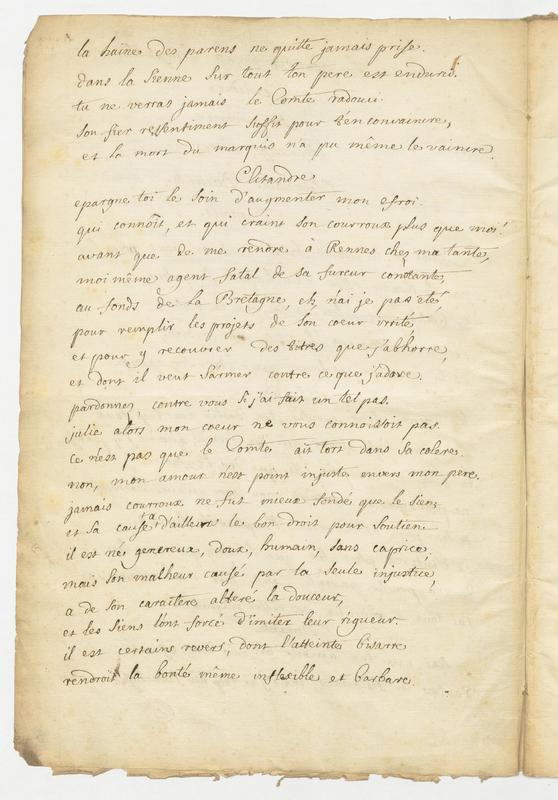 la haine des parens ne quitte jamais prise.
dans la sienne sur tout ton pere est endurci.
tu ne verras jamais le Comte radouci.
son fier ressentiment suffit pour t'en convaincre,
et la mort du marquis n'a pu même le vaincre.
Clitandre
epargne toi le soin d'augmenter mon efroi.
qui connoît, et qui craint son courroux plus que moi!
avant que de me rendre à Rennes chez ma tante,
moi même agent fatal de sa fureur constante,
au fonds de la Bretagne, eh, n'ai je pas été,
pour remplir les projets de son coeur irrité
et pour y recouvrer des titres que j'abhorre,
et dont il veut s'armer contre ce que j'adore.
pardonnez, contre vous si j'ai fait un tel pas.
julie alors mon coeur ne vous connoissoit pas.
ce n'est pas que le Comte ait tort dans sa colere.
non, mon amour n'est point injuste envers mon pere.
jamais courroux ne fut mieux fondé que le sien,
et sa cause a d'ailleurs le bon droit pour soutien.
il est né genereux, doux, humain, sans caprice,
mais son malheur causé par la seule injustice,
a de son caractere alteré la douceur,
et les siens l'ont forcé d'imiter leur rigueur.
il est certains revers, dont l'atteinte bisarre
rendroit la bonté même inflexible et barbare.